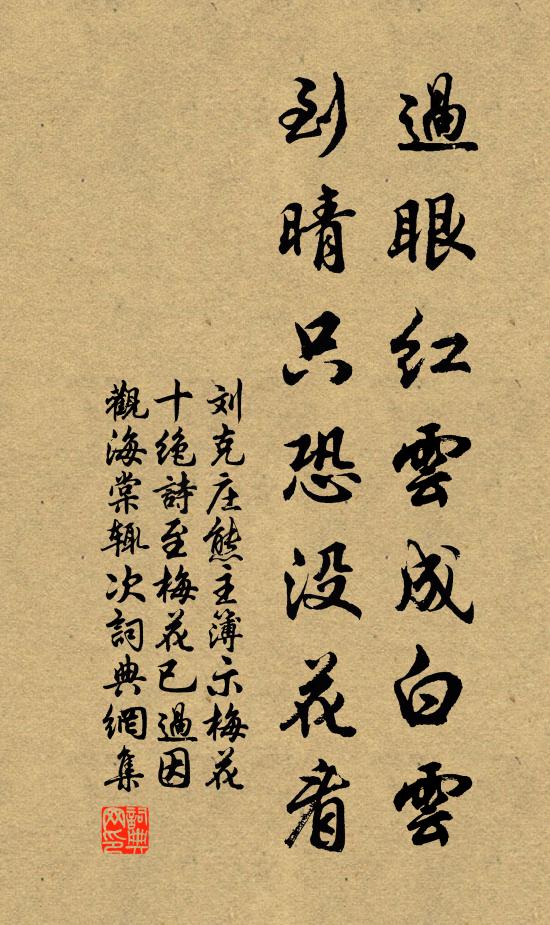 過眼紅雲成白雲
到晴只恐没花看
刘克庄熊主簿示梅花
十绝詩至梅花已過因
觀海棠辄次詞典網集
詞典
网印